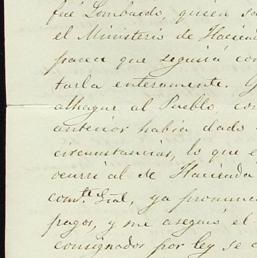 fué Lombardo, quien
el Ministerio de Hacien
parece que seguirá con
tarla enteramente.
alhague al Pueblo, con
anterior habia dado
circunstancias, lo que
ocurri al de Hacienda
ya pronun
pagos, y me aseguró el
consignados por ley se